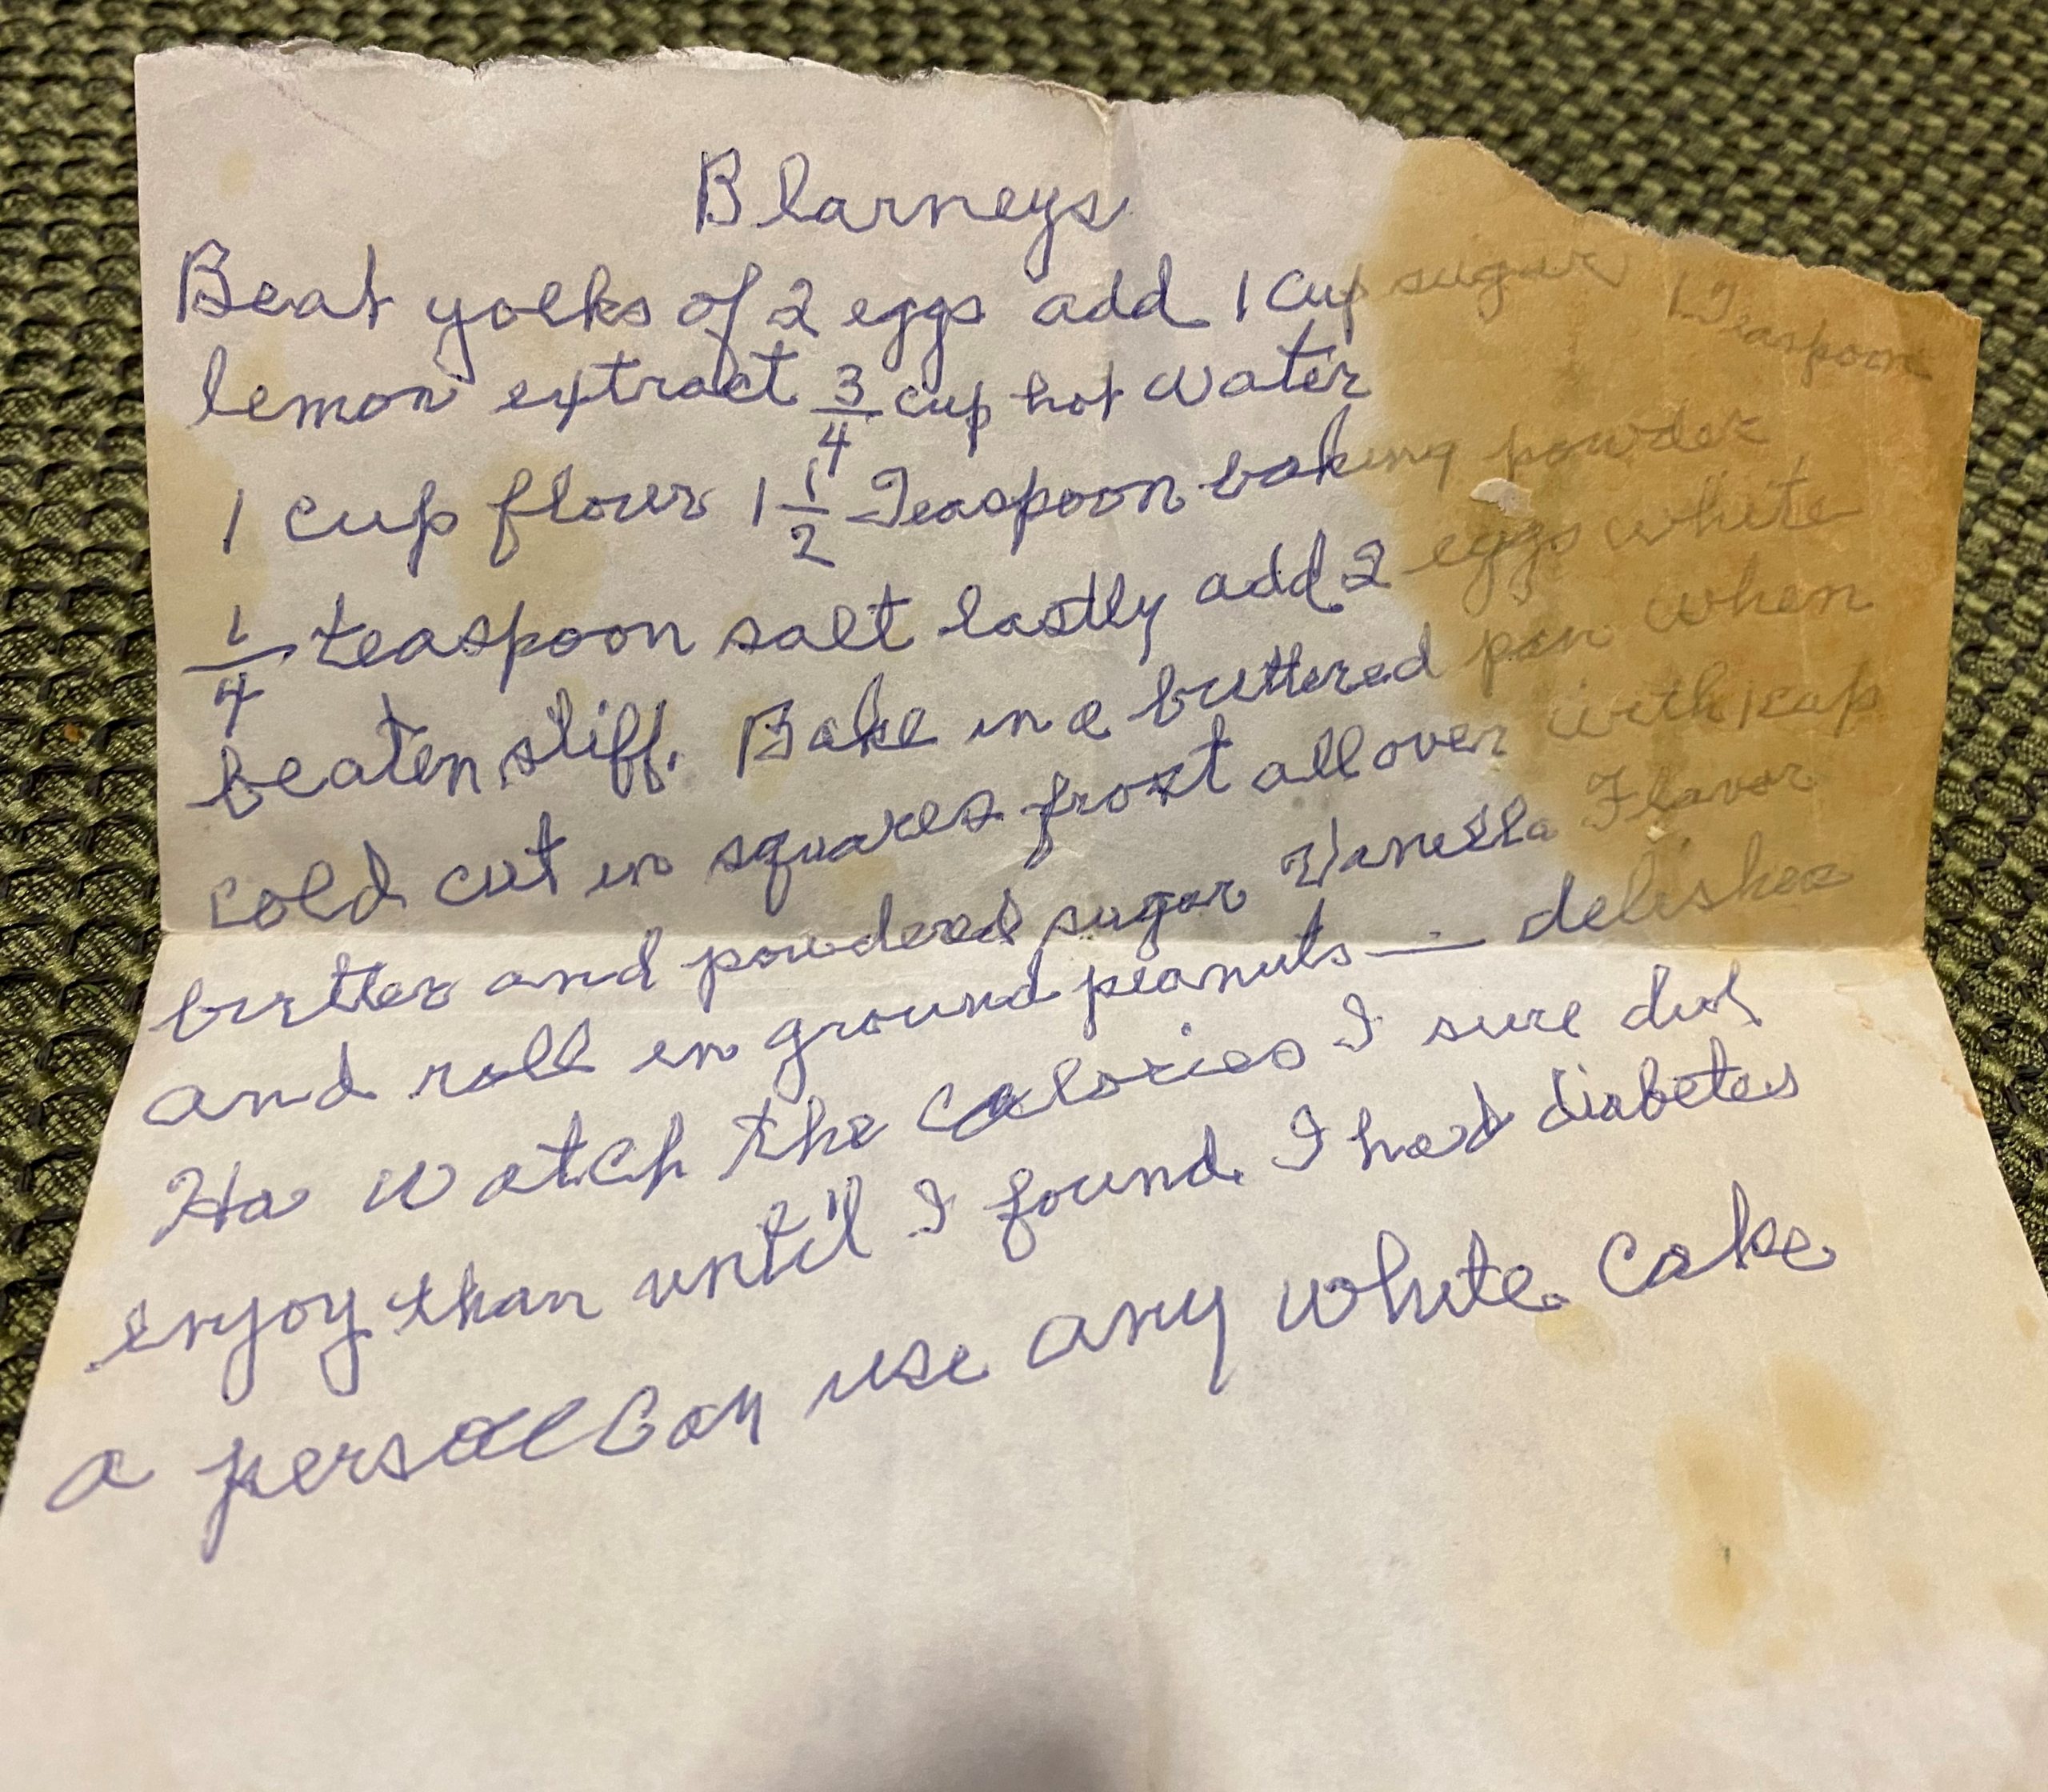 Blarneys
Beat yoelks of 2 eggs add 1 cup sugar 1 Teaspoon
lemon extract 3/4 cup hot water
1 cup flour 1 1/2 Teaspoon baking powder
1/4 teaspoon salt lastly add 2 eggs white
beaten stiff. Bake in a buttered pan when
cold cut in squares frost all over with 1 cup
butter and powdered sugar Vanilla Flavor
and roll in ground peanuts — delishea
Ha watch the calories I sure did
enjoy than until I found I had diabetes
a person can use any white cake